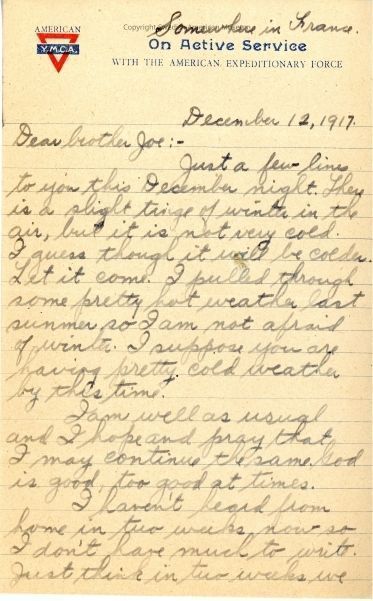 Somewhere in France.
AMERICAN
Y.M.C.A.
On Active Service
WITH THE AMERICAN EXPEDITIONARY FORCE
December 12, 1917.
Dear brother Joe:-
Just a few lines
to you this December night. There
is a slight tinge of winter in the
air, but it is not very cold.
I guess though it will be colder.
Let it come. I pulled through
some pretty hot weather last
summer so I am not afraid
of winter. I suppose you are
having pretty cold weather
by this time.
I am well as usual
and I hope and pray that,
I may continue the same. God
is good, too good at times.
I haven't heard from
home in two weeks now so
I don't have much to write.
Just think in two weeks we